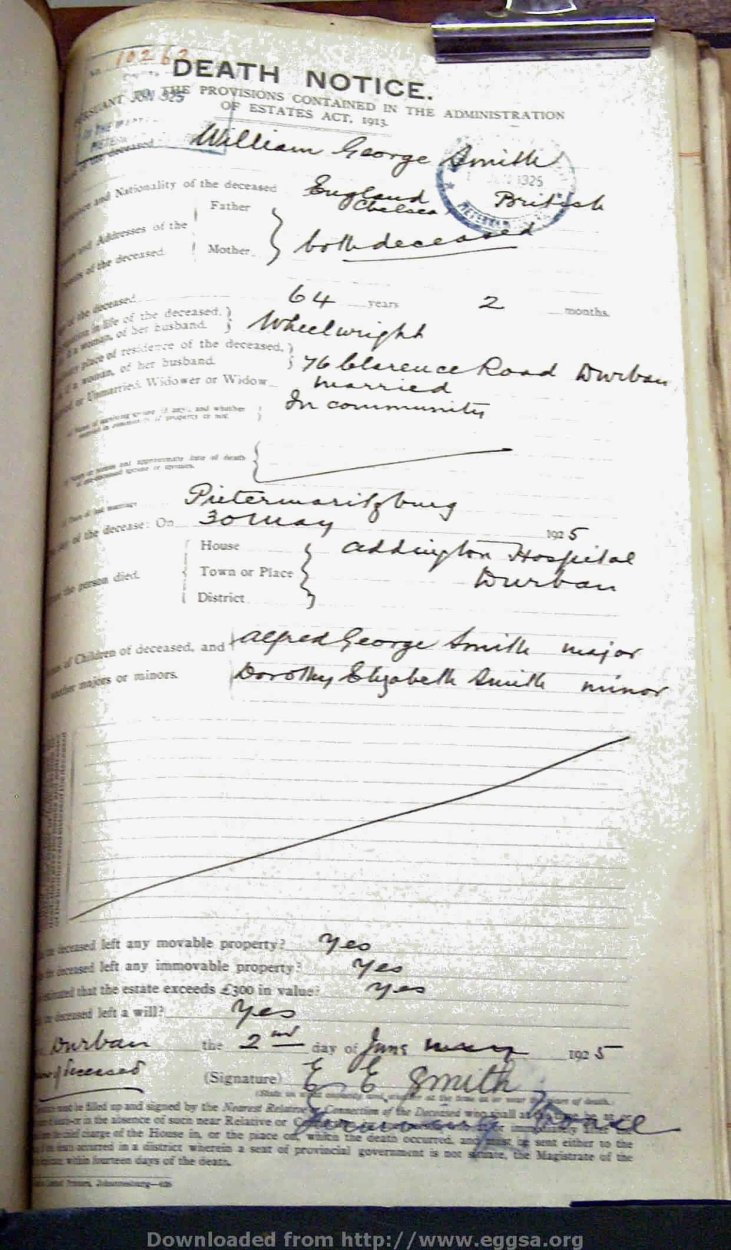 No. 10262
DEATH NOTICE.
PURSUANT TO THE PROVISIONS CONTAINED IN THE ADMINISTRATION
OF ESTATES ACT, 1913.
JUN 1925
of the deceased William George Smith
1925
and Nationality of the deceased England British
Chelsea
Father
and Addresses of the
of the deceased. Mother both deceased
of the deceased 64 years 2 months.
in life of the deceased,
of her husband. Wheelwright
place of residence of the deceased,
if a woman, of her husband. 76 Clarence Road Durban
or Unmarried, Widower or Widow married
In community
Place of last marriage Pietermaritzburg
of the decease: On 30 May 1925
House Addington Hospital
the person died. Town or Place Durban
District
of Children of deceased, and Alfred George Smith major
whether majors or minors. Dorothy Elizabeth Smith minor
deceased left any movable property? Yes
deceased left any immovable property? Yes
estimated that the estate exceeds £300 in value? Yes
deceased left a will? Yes
Durban the 2nd day of June may 1925
of deceased (Signature) E E Smith
must be filled up and signed by the Nearest Relative or Connection of the Deceased who shall at
or in the absence of such near Relative or
charge of the House in, or the place on, which the death occurred, and must be sent either to the
occurred in a district wherein a seat of provincial government is not situate, the Magistrate of the
within fourteen days of the death.
Downloaded from http://www.eggsa.org